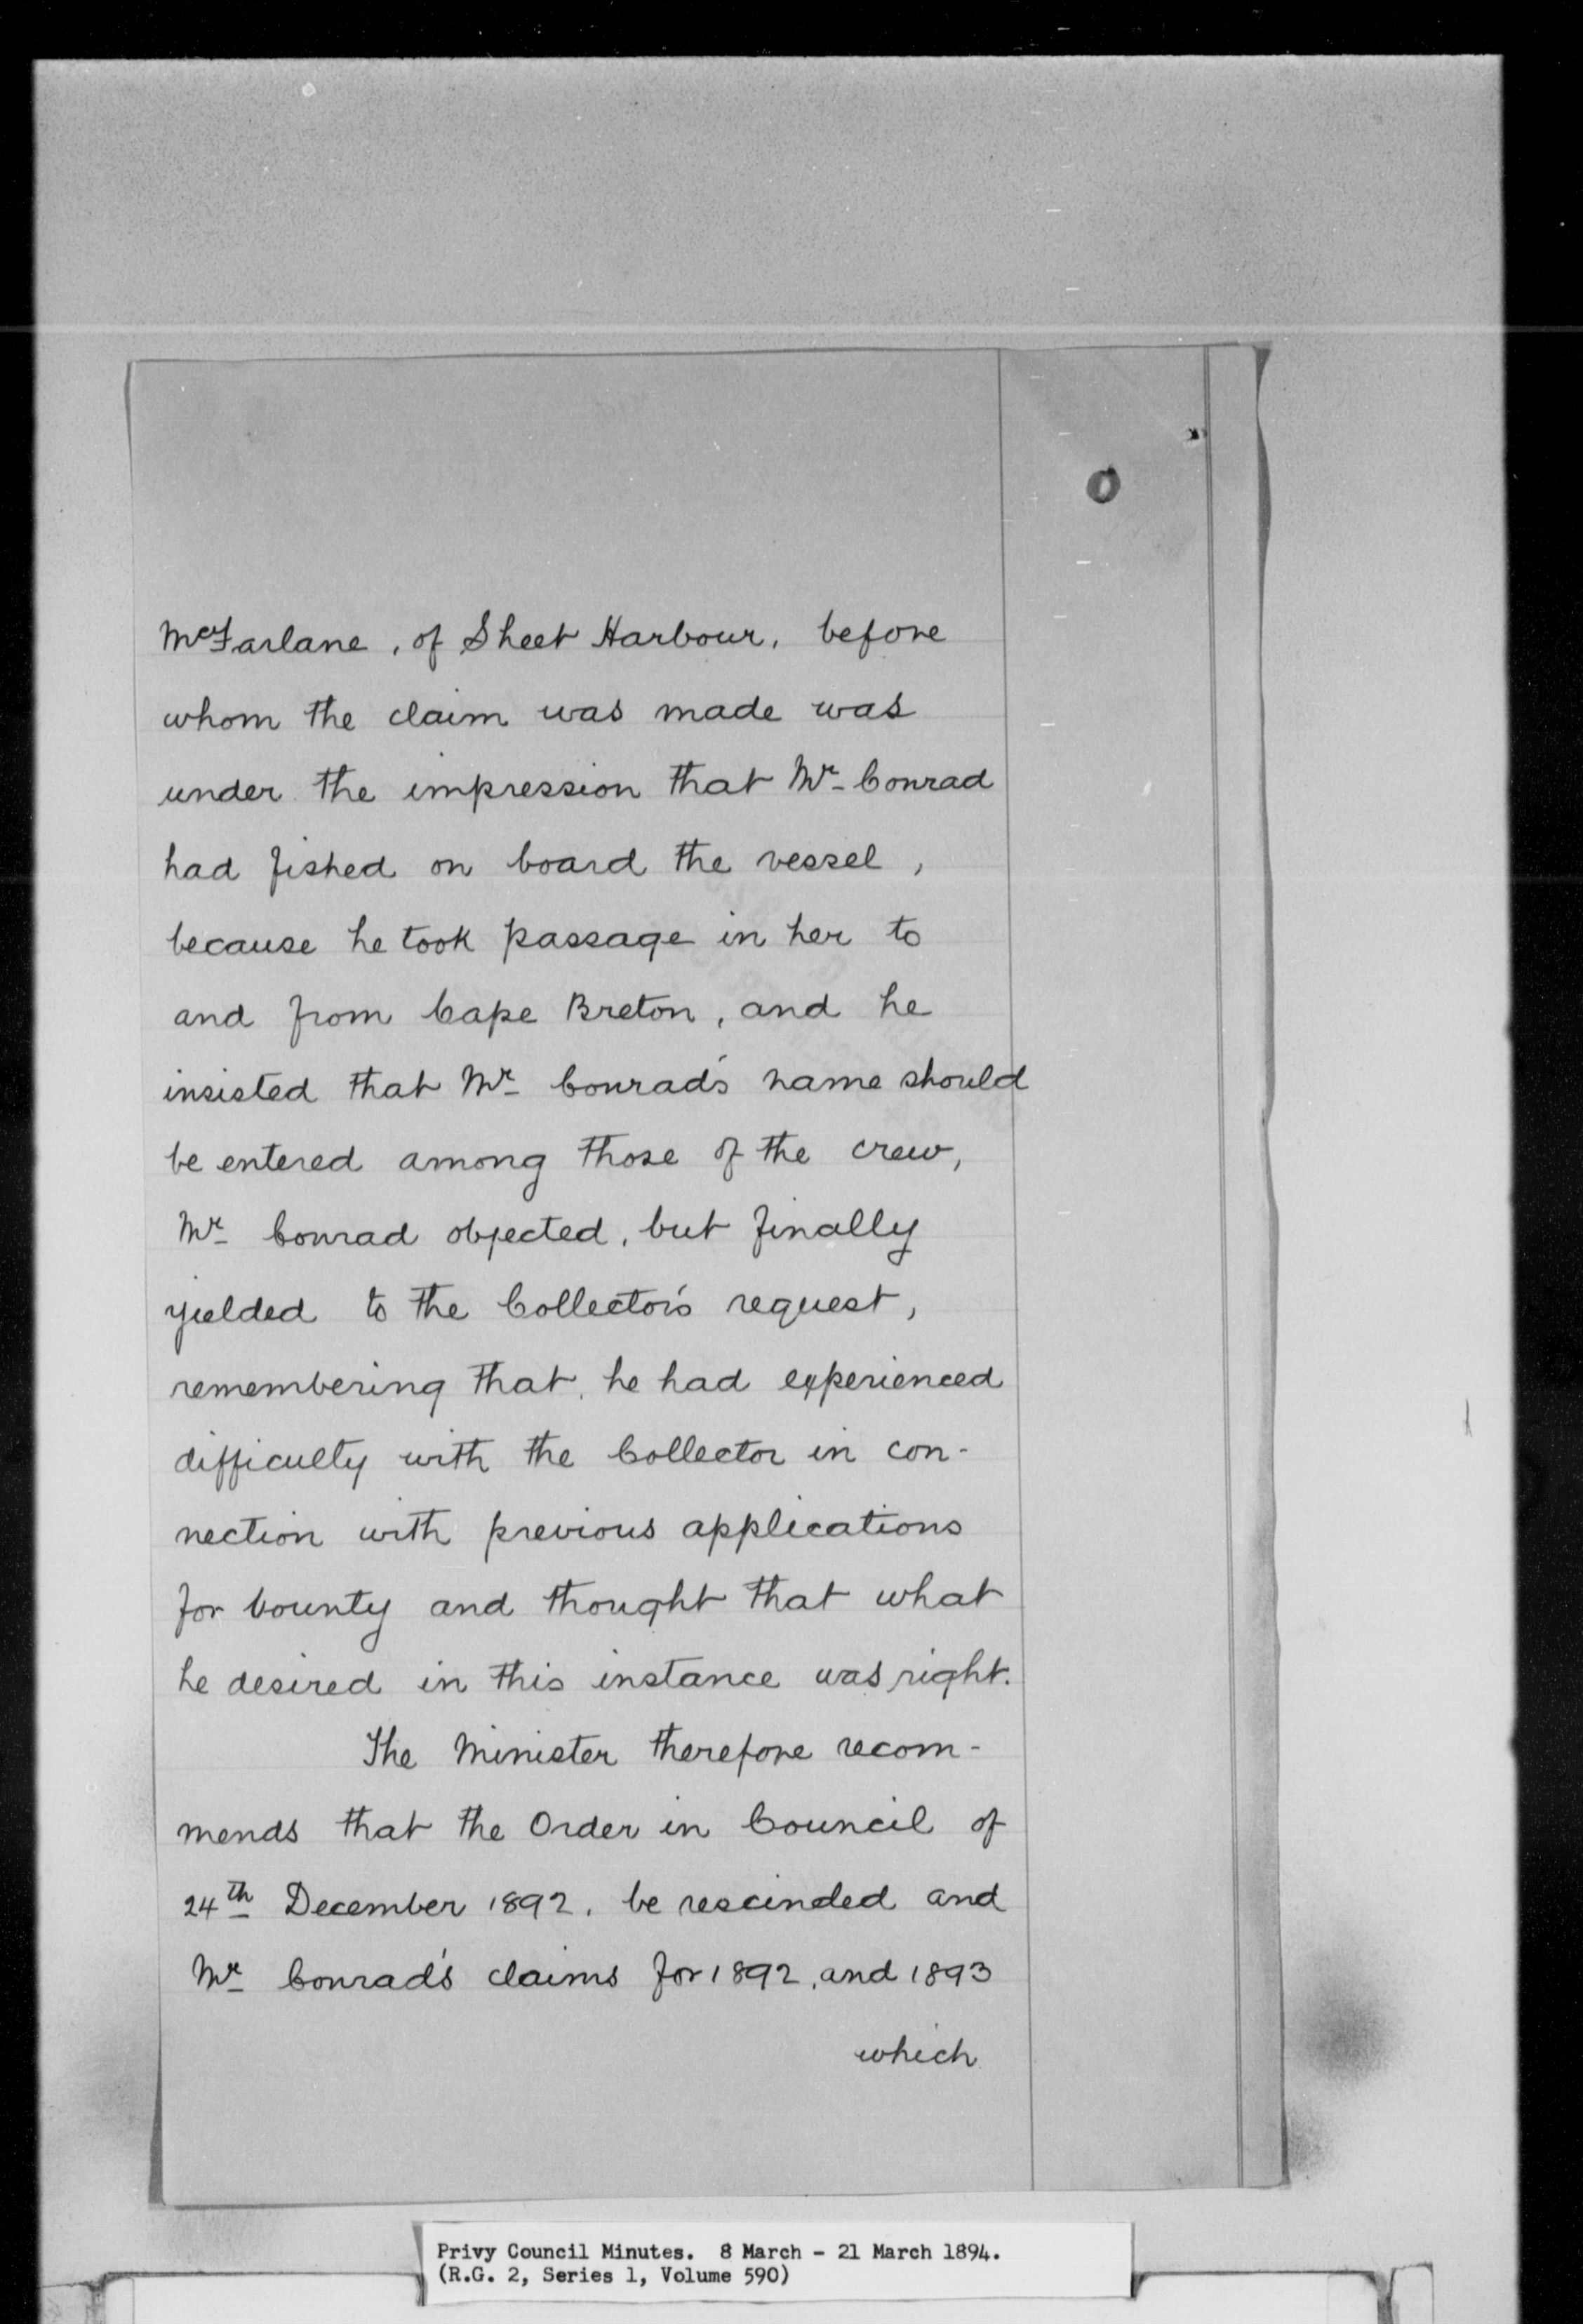 McFarlane, of Sheet Harbour, before
whom the claim was made was
under the impression that Mr. Conrad
had fished on board the vessel,
because he took passage in her to
and from Cape Breton, and he
insisted that Mr. Conrad's name should
be entered among those of the crew,
Mr. Conrad objected, but finally
yielded to the Collector's request,
remembering that, he had experienced
difficulty with the Collector in con-
nection with previous applications
for bounty and thought that what
he desired in this instance was right.
The Minister therefore recom-
mends that the Order in Council of
24th December 1892, be rescinded and
Mr. Conrad's claims for 1892, and 1893
which
Privy Council Minutes. 8 March - 21 March 1894.
(R.G. 2, Series 1, Volume 590)